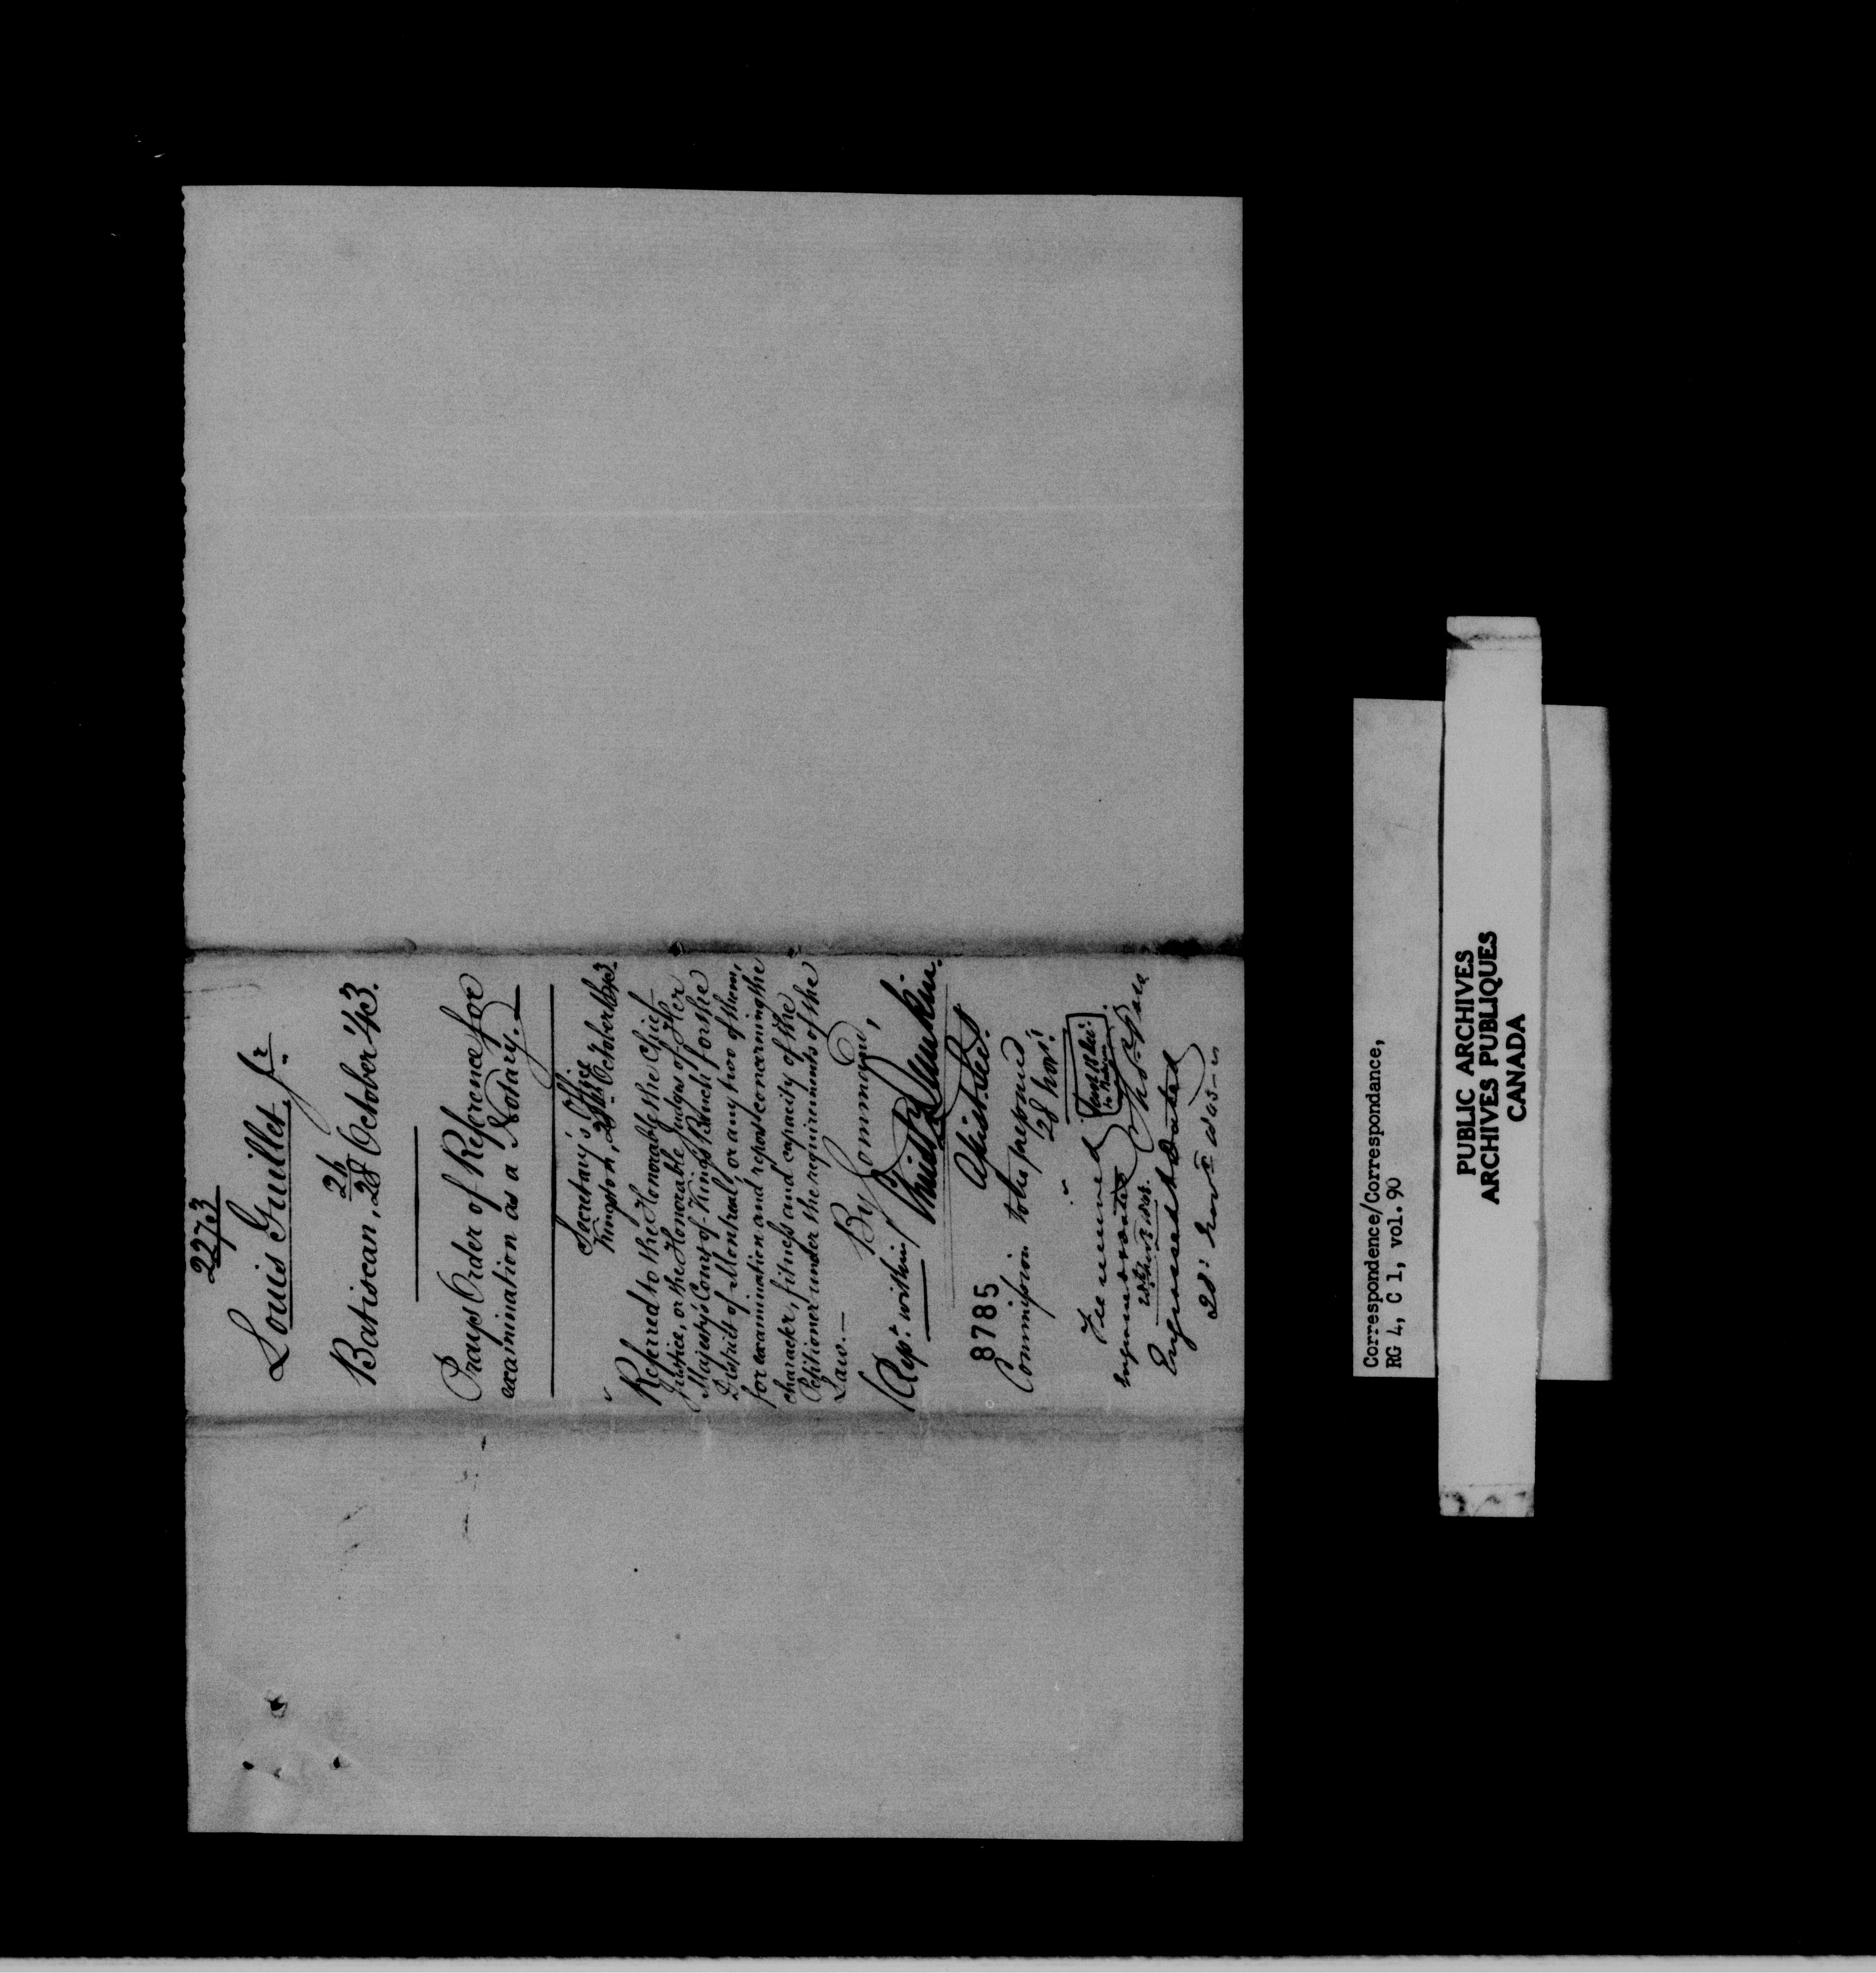 2273
Louis Guillet, Jr.
26
Batiscan, 28 October '43.
Prays Order of Reference for
examination as a Notary.
Secretary's Office
Kingston, 28th October 1843.
Referred to the Honorable the Chief
Justice, or the Honorable Judges of Her
Majesty's Court of King's Bench for the
District of Montreal, or any two of them,
for examination and report concerning the
character, fitness and capacity of the
Petitioner under the requirements of the
Law.—
By Command,
(Rept. within)
Christ Dunkin.
Assist. Secy.
8785
Commission to be prepared
28 Novr.
Fee
Engrossed
28
Correspondence/Correspondance,
RG 4, C 1, vol. 90
PUBLIC ARCHIVES
ARCHIVES PUBLIQUES
CANADA